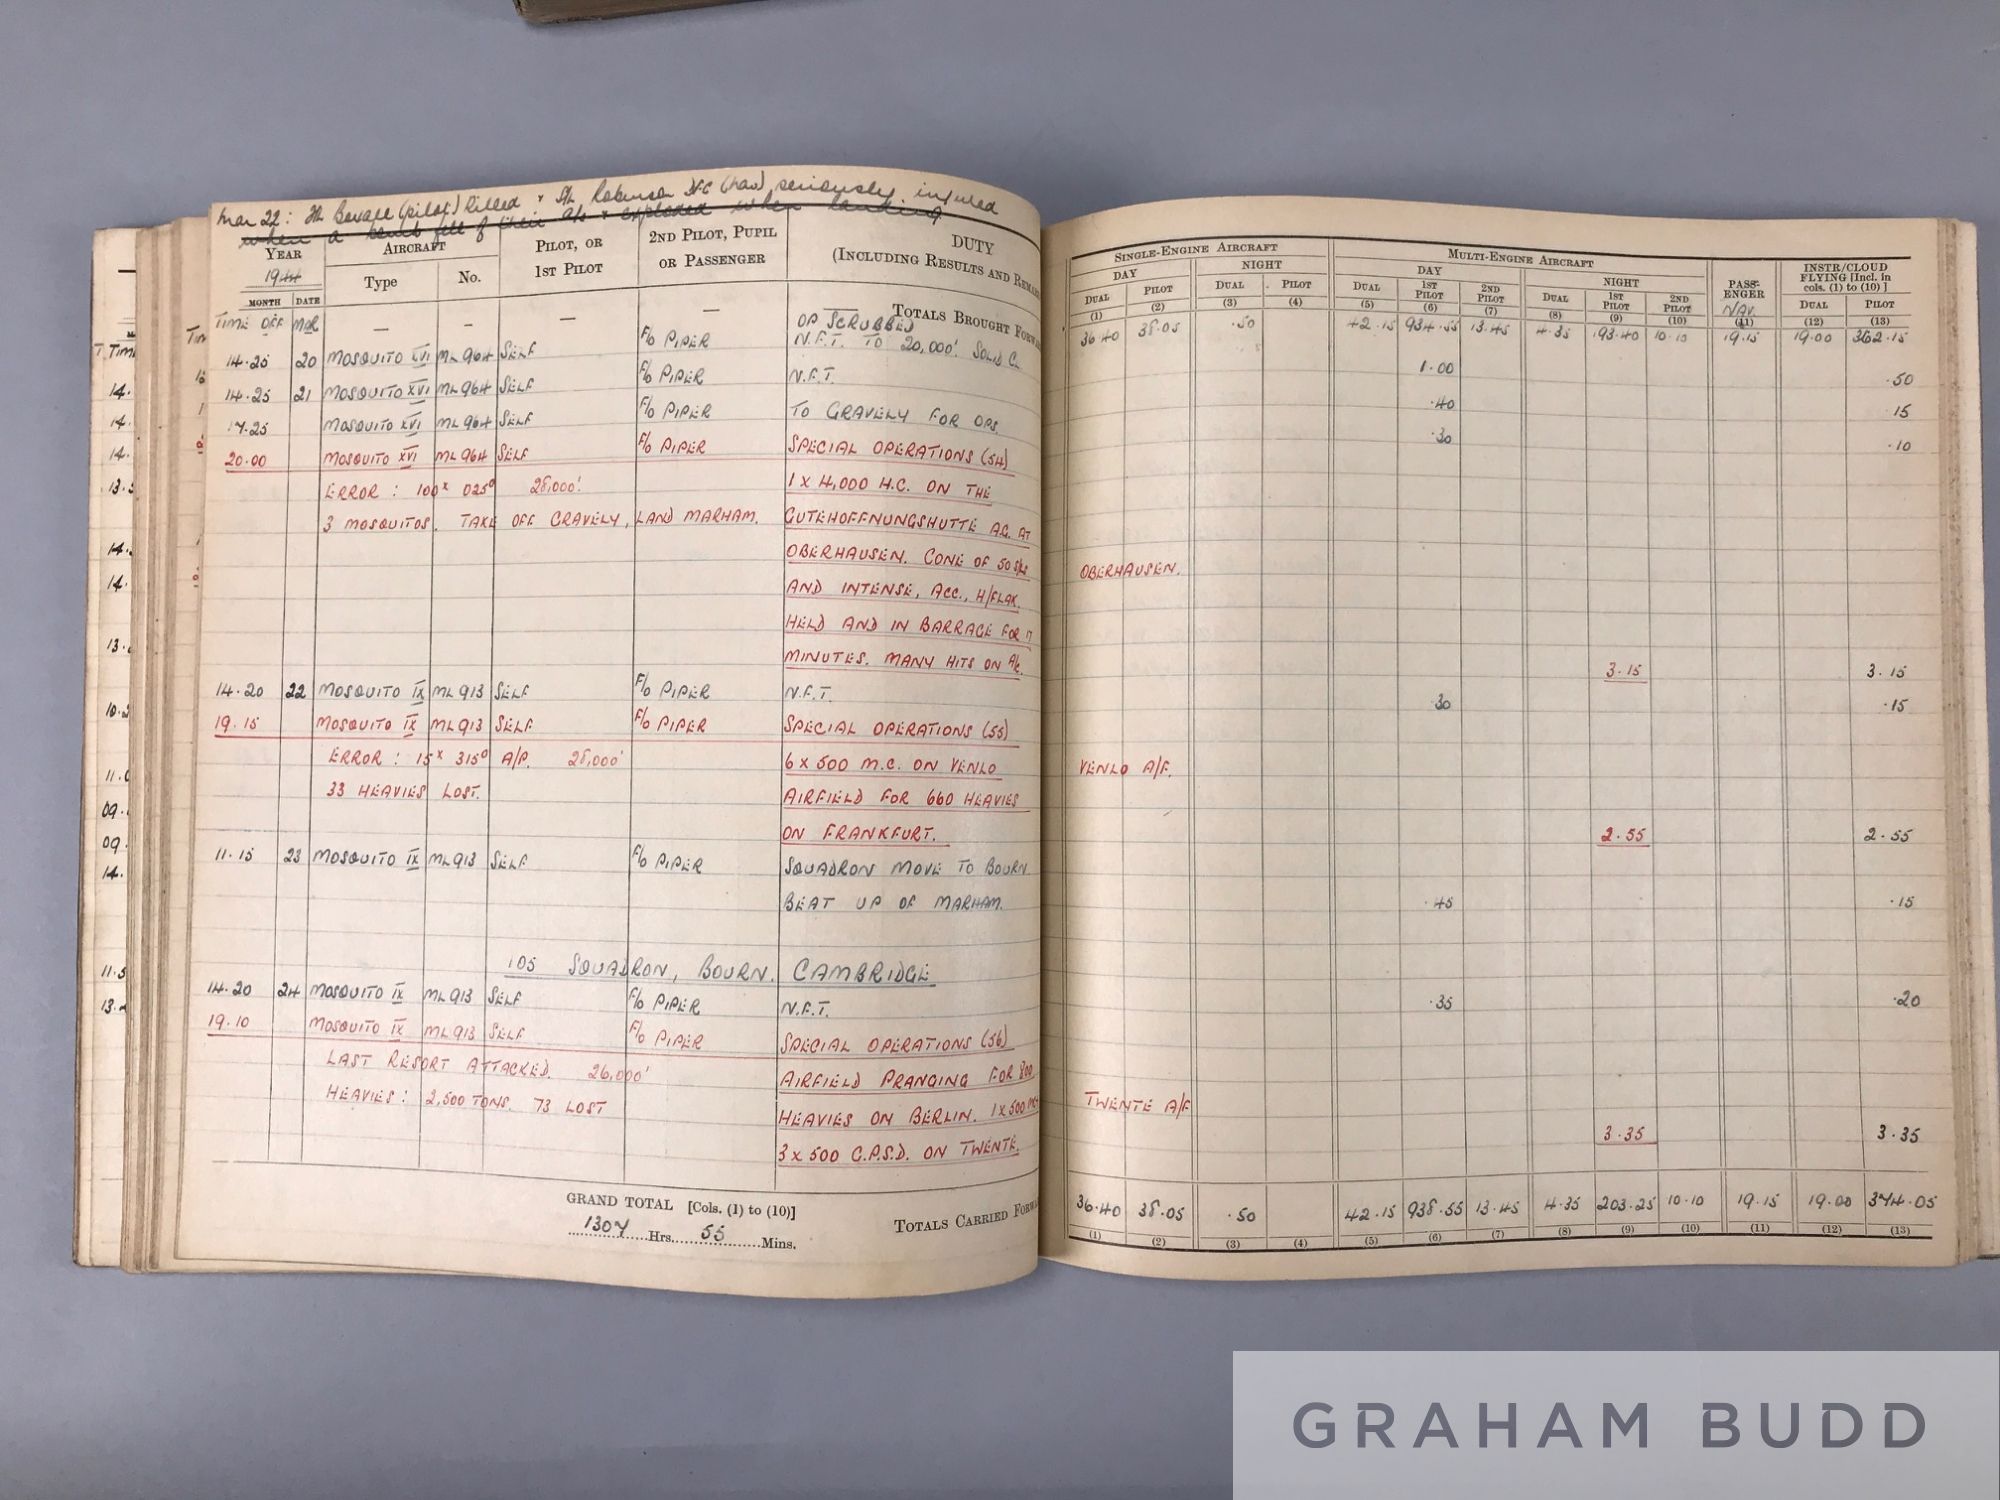 Mar 22: F/L Boxall (pilot) killed & F/L Robinson DFC (nav) seriously injured
when a bomb fell off their a/c & exploded when landing
YEAR AIRCRAFT PILOT, OR 2ND PILOT, PUPIL DUTY
1944 Type No. 1ST PILOT OR PASSENGER (INCLUDING RESULTS AND REMAR
MONTH DATE
TIME OFF MAR — — — — TOTALS BROUGHT FORWA
OP SCRUBBED
14.25 20 MOSQUITO XVI ML 964 SELF F/O PIPER N.F.T. TO 20,000'. SOLID CL.
14.25 21 MOSQUITO XVI ML 964 SELF F/O PIPER N.F.T.
17.25 MOSQUITO XVI ML 964 SELF F/O PIPER TO GRAVELY FOR OPS.
20.00 MOSQUITO XVI ML 964 SELF F/O PIPER SPECIAL OPERATIONS (54)
ERROR : 100x 025° 28,000'. 1 X 4,000 H.C. ON THE
3 MOSQUITOS. TAKE OFF GRAVELY, LAND MARHAM. GUTEHOFFNUNGSHUTTE A.G. AT
OBERHAUSEN. CONE OF 50 S/LS
AND INTENSE, ACC., H/FLAK.
HELD AND IN BARRAGE FOR 17
MINUTES. MANY HITS ON A/C
14.20 22 MOSQUITO IX ML 913 SELF F/O PIPER N.F.T.
19.15 MOSQUITO IX ML 913 SELF F/O PIPER SPECIAL OPERATIONS (55)
ERROR : 15x 315° A/P. 28,000' 6 X 500 M.C. ON VENLO
33 HEAVIES LOST. AIRFIELD FOR 660 HEAVIES
ON FRANKFURT.
11.15 23 MOSQUITO IX ML 913 SELF F/O PIPER SQUADRON MOVE TO BOURN.
BEAT UP OF MARHAM.
105 SQUADRON, BOURN. CAMBRIDGE
14.20 24 MOSQUITO IX ML 913 SELF F/O PIPER N.F.T.
19.10 MOSQUITO IX ML 913 SELF F/O PIPER SPECIAL OPERATIONS (56)
LAST RESORT ATTACKED. 26,000' AIRFIELD PRANGING FOR 800
HEAVIES : 2,500 TONS. 73 LOST HEAVIES ON BERLIN. 1 X 500 MC
3 X 500 C.P.S.D. ON TWENTE.
GRAND TOTAL [Cols. (1) to (10)]
1307 Hrs. 55 Mins.
TOTALS CARRIED FORWA
SINGLE-ENGINE AIRCRAFT MULTI-ENGINE AIRCRAFT PASS-ENGER INSTR/CLOUD FLYING [Incl. in cols. (1) to (10) ]
DAY NIGHT DAY NIGHT
DUAL PILOT DUAL PILOT DUAL 1ST PILOT 2ND PILOT DUAL 1ST PILOT 2ND PILOT NAV. DUAL PILOT
(1) (2) (3) (4) (5) (6) (7) (8) (9) (10) (11) (12) (13)
36.40 38.05 .50 42.15 934.55 13.45 4.35 193.40 10.10 19.15 19.00 362.15
1.00 .50
.40 15
.30 .10
OBERHAUSEN.
3.15 3.15
.30 .15
VENLO A/F.
2.55 2.55
.45 .15
.35 .20
TWENTE A/F
3.35 3.35
36.40 38.05 .50 42.15 938.55 13.45 4.35 203.25 10.10 19.15 19.00 374.05
(1) (2) (3) (4) (5) (6) (7) (8) (9) (10) (11) (12) (13)
GRAHAM BUDD